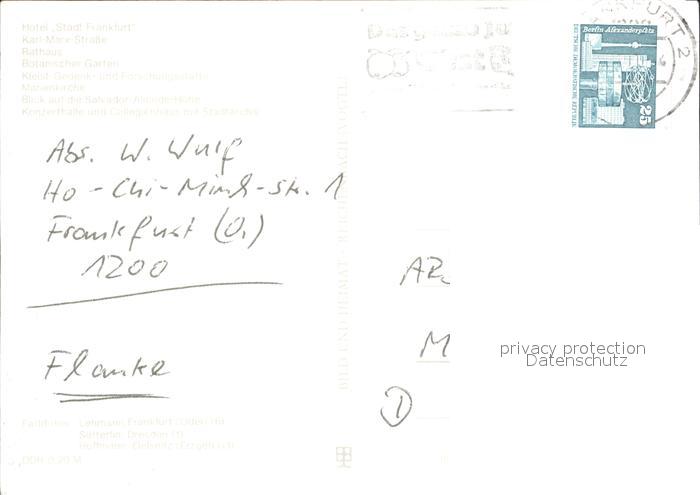 Hotel „Stadt Frankfurt"
Karl-Marx-Straße
Rathaus
Botanischer Garten
Kleist-Gedenk- und Forschungsstätte
Marienkirche
Blick auf die Salvador-Allende-Höhe
Konzerthalle und Collegienhaus mit Stadtarchiv
Abs. W. Wulf
Ho-Chi-Minh-Str. 1
Frankfurt (O.)
1200
Flanke
Farbfotos: Lehmann, Frankfurt (Oder) (6)
Sütterlin, Dresden (1)
Hoffmann, Oelsnitz (Erzgeb.) (1)
DDR 0,20 M
BILD UND HEIMAT · REICHENBACH (VOGTL)
FURT 2
Berlin Alexanderplatz
DEUTSCHE DEMOKRATISCHE REPUBLIK
25
M
D
privacy protection
Datenschutz